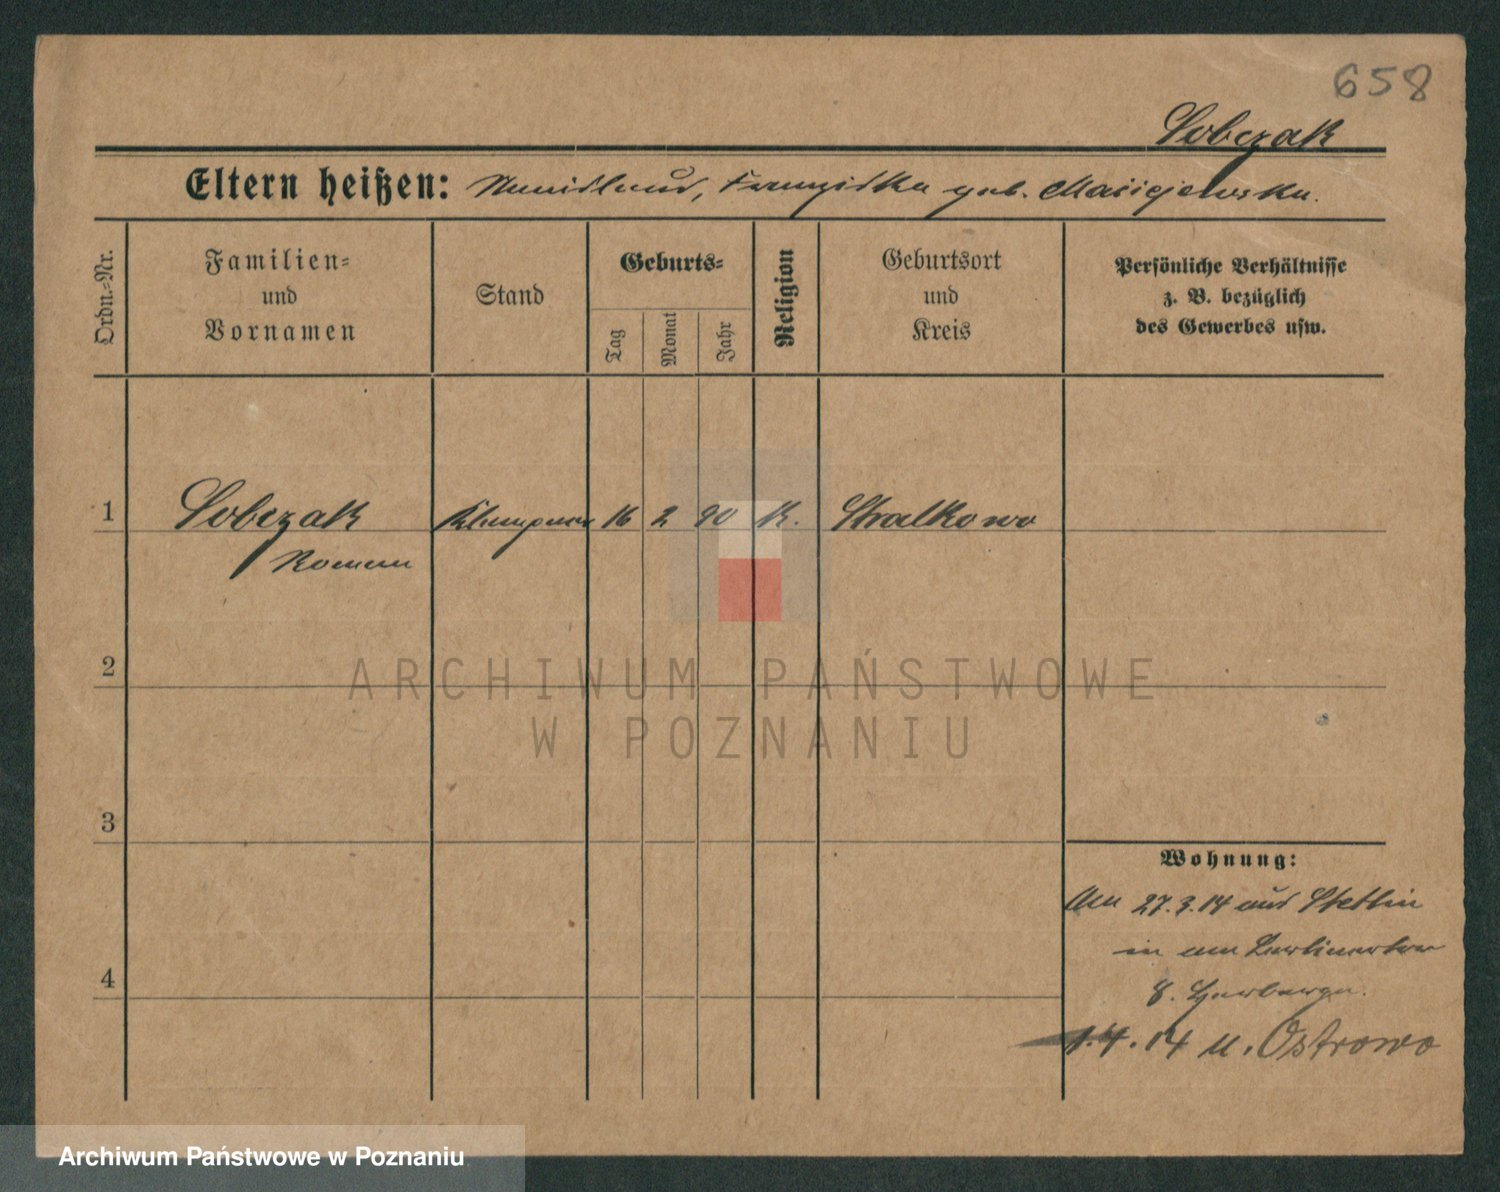 658
Sobczak
Eltern heißen: Stanislaus, Franziska geb. Maciejewska.
Ordn.-Nr.
Familien-
und
Vornamen
Stand
Geburts-
Tag
Monat
Jahr
Religion
Geburtsort
und
Kreis
Persönliche Verhältnisse
z. B. bezüglich
des Gewerbes usw.
1 Sobczak Klempner 16 2 90 K. Stralkowo
Roman
2
3
4
Wohnung:
Am 27.3.14 aus Stettin
8. Herberge.
1.4.14 n. Ostrowo
ARCHIWUM PAŃSTWOWE
W POZNANIU
Archiwum Państwowe w Poznaniu